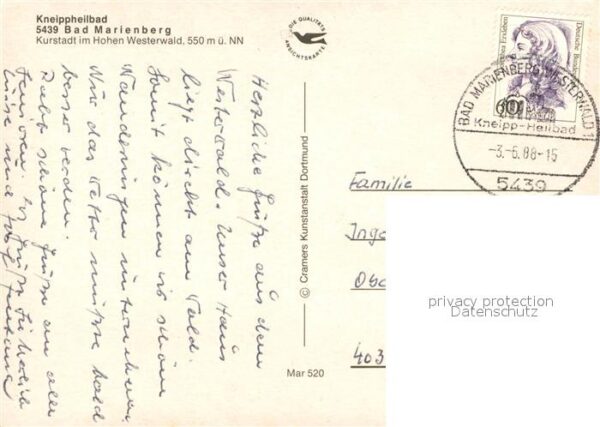 Kneippheilbad
5439 Bad Marienberg
Kurstadt im Hohen Westerwald, 550 m ü. NN
DIE QUALITÄTS
ANSICHTSKARTE
Herzliche Grüße aus dem
Westerwald. Unser Haus
liegt direkt am Wald.
Somit können wir schöne
Wanderungen unternehmen.
Nur das Wetter müßte bald
besser werden.
schöne Grüße an alle
© Cramers Kunstanstalt Dortmund
Mar 520
Deutsche Bundes
60
BAD MARIENBERG, WESTERWALD 1
Kneipp-Heilbad
-3.-6.88-15
5439
Familie
Inge
Obe
403
privacy protection
Datenschutz